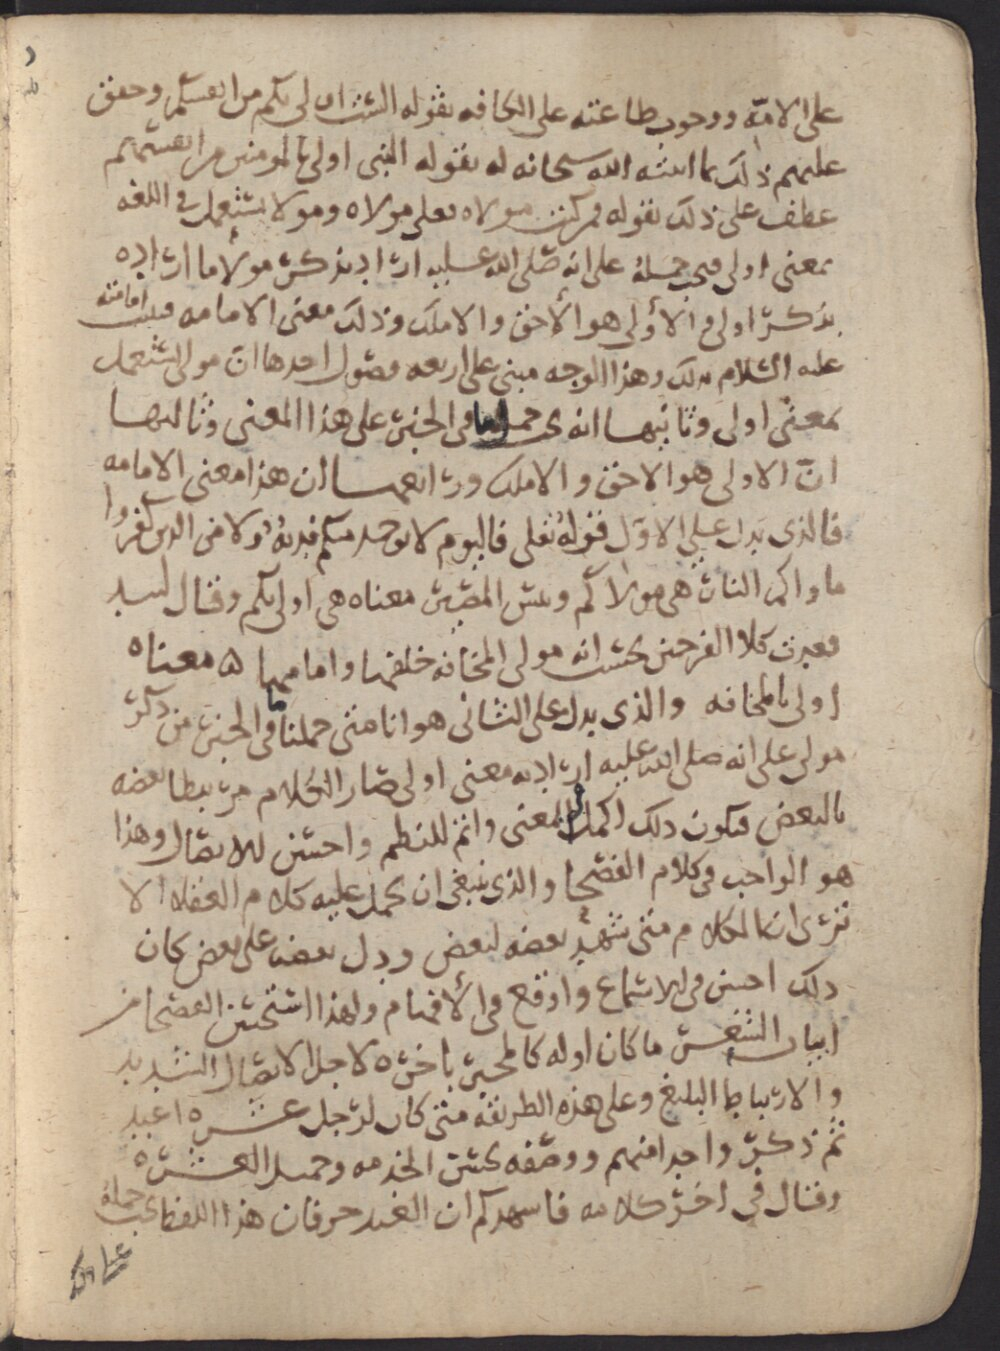 على الامّة ووجوب طاعته على الكافه بقوله الست اولى بكم من انفسكم وحقق
عليهم ذلك بما اثبته الله سبحانه له بقوله النبي اولى بالمومنين من انفسهم ثم
عطف على ذلك بقوله فمن كنت مولاه فعلي مولاه ومولا يستعمل في اللغه
بمعنى اولى فيجب حمله على انه صلى الله عليه اراد بذكر مولا ما اراده
بذكر اولى والأولى هو الأحق والاملك وذلك معنى الامامه فثبت امامته
عليه السّلام بذلك وهذا الوجه مبني على اربعه فصول احدها انّ مولى يستعمل
بمعنى اولى وثانيها انه يجب حمل ما في الخبر على هذا المعنى وثالثها
انّ الاولى هو الاحق والاملك ورابعها ان هذا معنى الامامه
فالذي يدل على الاوّل قوله تعلى فاليوم لا يوخذ منكم فديةٌ ولا من الذين كفروا
ماواكم النار هي مولاكم وبئس المصير معناه هي اولى بكم وقال لبيد
فعدت كلا الفرجين تحسب انه مولى المخافه خلفها وامامها ۵ معناه
اولى بالمخافه والذي يدل على الثاني هو انا متى حملنا ما في الخبر من ذكر
مولى على انه صلى الله عليه اراد به معنى اولى صار الكلام مرتبطا بعضه
بالبعض فيكون ذلك اكمل للمعنى واتم للنظم واحسن للاتصال وهذا
هو الواجب في كلام الفصحا والذي ينبغي ان يحمل عليه كلام العقلا الا
ترى ان الكلام متى شهد بعضه لبعض ودل بعضه على بعض كان
ذلك احسن في الاستماع واوقع في الأفهام ولهذا استحسن الفصحا من
ابيات الشعر ما كان اوله كالمخبر باخره لاجل الاتصال الشديد
والارتباط البليغ وعلى هذه الطريقه متى كان لرجل عشره اعبد
ثم ذكر واحدا منهم ووصفه بحسن الخدمه وجميل العشره
وقال في اخر كلامه فاشهدكم ان العبد حر فان هذا اللفظ يجب حمله